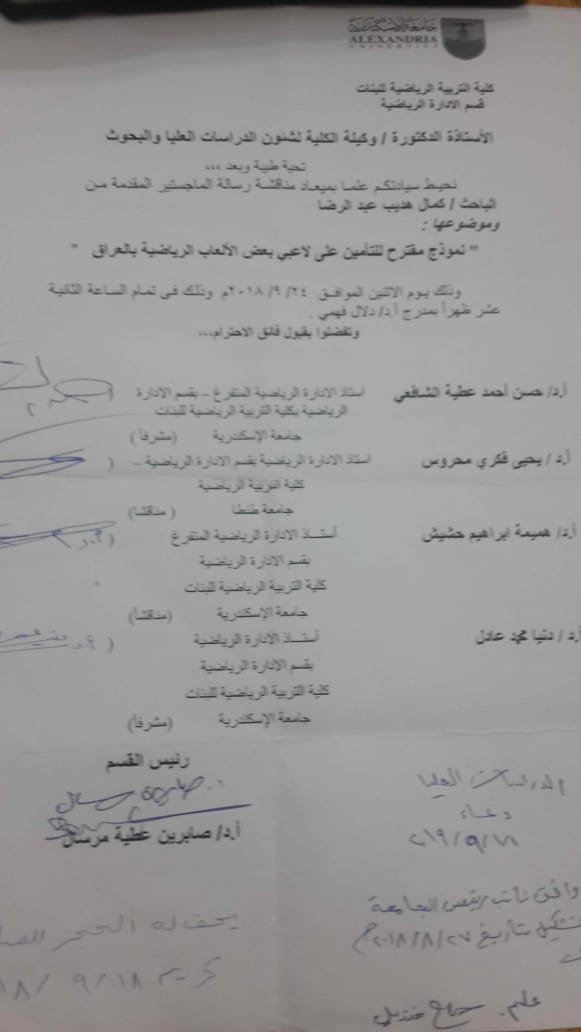 جامعة الإسكندرية
ALEXANDRIA
UNIVERSITY
كلية التربية الرياضية للبنات
قسم الادارة الرياضية
الأستاذة الدكتورة / وكيلة الكلية لشئون الدراسات العليا والبحوث
تحية طيبة وبعد ،،،
نحيط سيادتكم علما بميعاد مناقشة رسالة الماجستير المقدمة من
الباحث / كمال هديب عبد الرضا
وموضوعها :
" نموذج مقترح للتأمين على لاعبي بعض الألعاب الرياضية بالعراق "
وذلك يوم الاثنين الموافق ٢٤/ ٩/ ٢٠١٨م وذلك فى تمام الساعة الثانية
عشر ظهراً بمدرج أ.د/ دلال فهمي .
وتفضلوا بقبول فائق الاحترام،،،
أ.د/ حسن أحمد عطية الشافعي استاذ الادارة الرياضية المتفرغ – بقسم الادارة
الرياضية بكلية التربية الرياضية للبنات
جامعة الإسكندرية (مشرفاً )
أ.د / يحيى فكري محروس استاذ الادارة الرياضية بقسم الادارة الرياضية – (
كلية التربية الرياضية
جامعة طنطا ( مناقشا)
أ.د/ هميمة ابراهيم حشيش أستاذ الادارة الرياضية المتفرغ (
بقسم الادارة الرياضية
كلية التربية الرياضية للبنات
جامعة الإسكندرية (مناقشاً)
أ.د / دنيا محمد عادل أستاذ الادارة الرياضية (
بقسم الادارة الرياضية
كلية التربية الرياضية للبنات
جامعة الإسكندرية (مشرفاً)
رئيس القسم
أ.د/ صابرين عطية مرسال
الدراسات العليا
دعاء
وافق نائب رئيس الجامعة
بتاريخ ٢٧/ ٨/ ٢٠١٨م